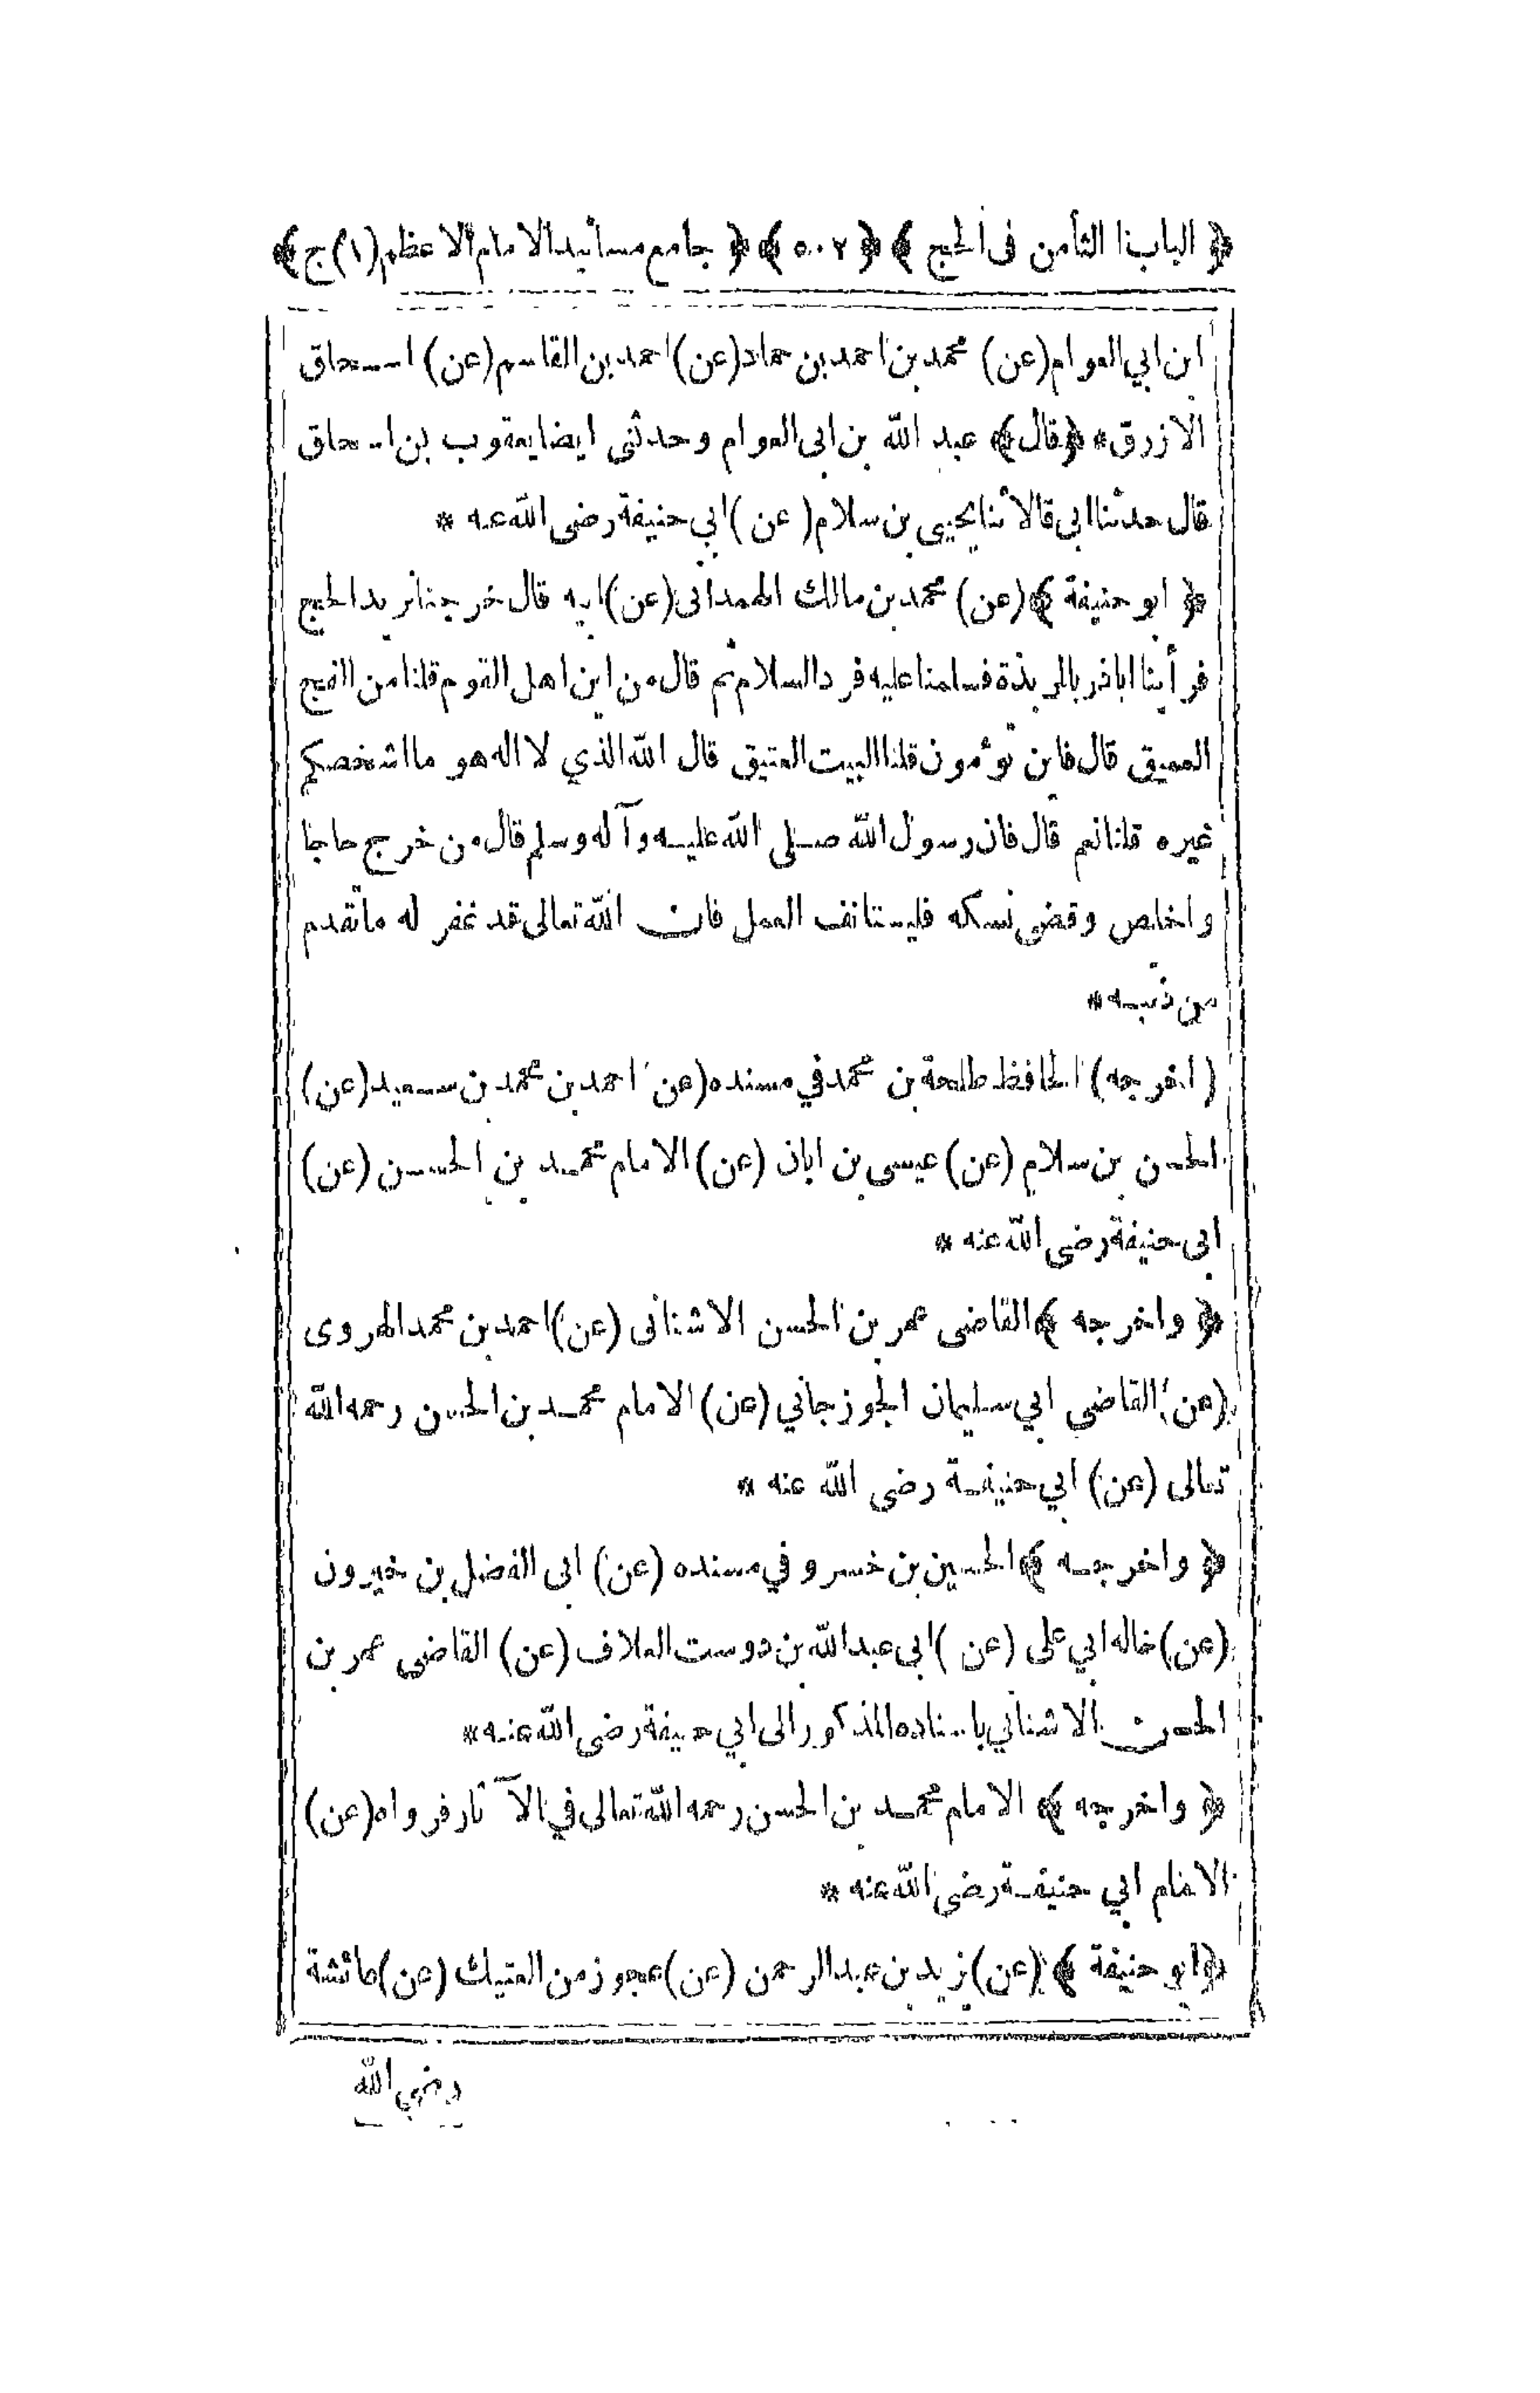 ﴿ الباب الثامن في الحج ﴾ ﴿ ٥٠٢ ﴾ ﴿ جامع مسانيد الامام الاعظم (١) ج ﴾
ابن ابي العوام (عن) محمد بن احمد بن حماد (عن) احمد بن القاسم (عن) اسحاق
الازرق * ﴿ قال ﴾ عبد الله بن ابي العوام وحدثني ايضا يعقوب بن اسحاق
قال حدثنا ابي قالا ثنا يحيى بن سلام (عن) ابي حنيفة رضي الله عنه *
﴿ ابو حنيفة ﴾ (عن) محمد بن مالك الهمداني (عن) ابيه قال خرجنا نريد الحج
فرأينا اباذر بالربذة فسلمنا عليه فرد السلام ثم قال من اين اهل القوم قلنا من الفج
العميق قال فاين تؤمون قلنا البيت العتيق قال الله الذي لا اله هو ما اشخصكم
غيره قلنا نعم قال فان رسول الله صلى الله عليه وآله وسلم قال من خرج حاجا
واخلص وقضى نسكه فليستانف العمل فان الله تعالى قد غفر له ما تقدم
من ذنبه *
(اخرجه) الحافظ طلحة بن محمد في مسنده (عن) احمد بن محمد بن سعيد (عن)
الحسن بن سلام (عن) عيسى بن ابان (عن) الامام محمد بن الحسن (عن)
ابى حنيفة رضى الله عنه *
﴿ واخرجه ﴾ القاضى عمر بن الحسن الاشنانى (عن) احمد بن محمد الهروى
(عن) القاضى ابي سليمان الجوزجاني (عن) الامام محمد بن الحسن رحمه الله
تعالى (عن) ابي حنيفة رضى الله عنه *
﴿ واخرجه ﴾ الحسين بن خسرو في مسنده (عن) ابى الفضل بن خيرون
(عن) خاله ابي على (عن) ابى عبد الله بن دوست العلاف (عن) القاضى عمر بن
الحسن الاشناني باسناده المذكور الى ابي حنيفة رضى الله عنه *
﴿ واخرجه ﴾ الامام محمد بن الحسن رحمه الله تعالى في الآثار فرواه (عن)
الامام ابي حنيفة رضى الله عنه *
﴿ ابو حنيفة ﴾ (عن) زيد بن عبد الرحمن (عن) عجوز من العتيك (عن) عائشة
رضي الله